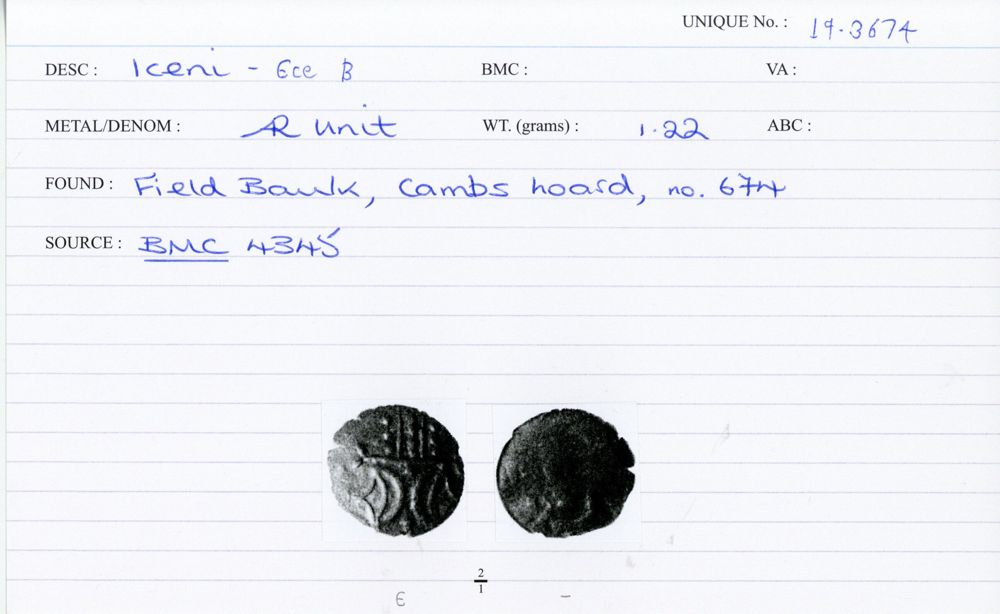 UNIQUE No. : 19.3674
DESC : Iceni - Ece B BMC : VA :
METAL/DENOM : AR Unit WT. (grams) : 1.22 ABC :
FOUND : Field Baulk, Cambs hoard, no. 674
SOURCE : BMC 4345
2
1
ϵ -